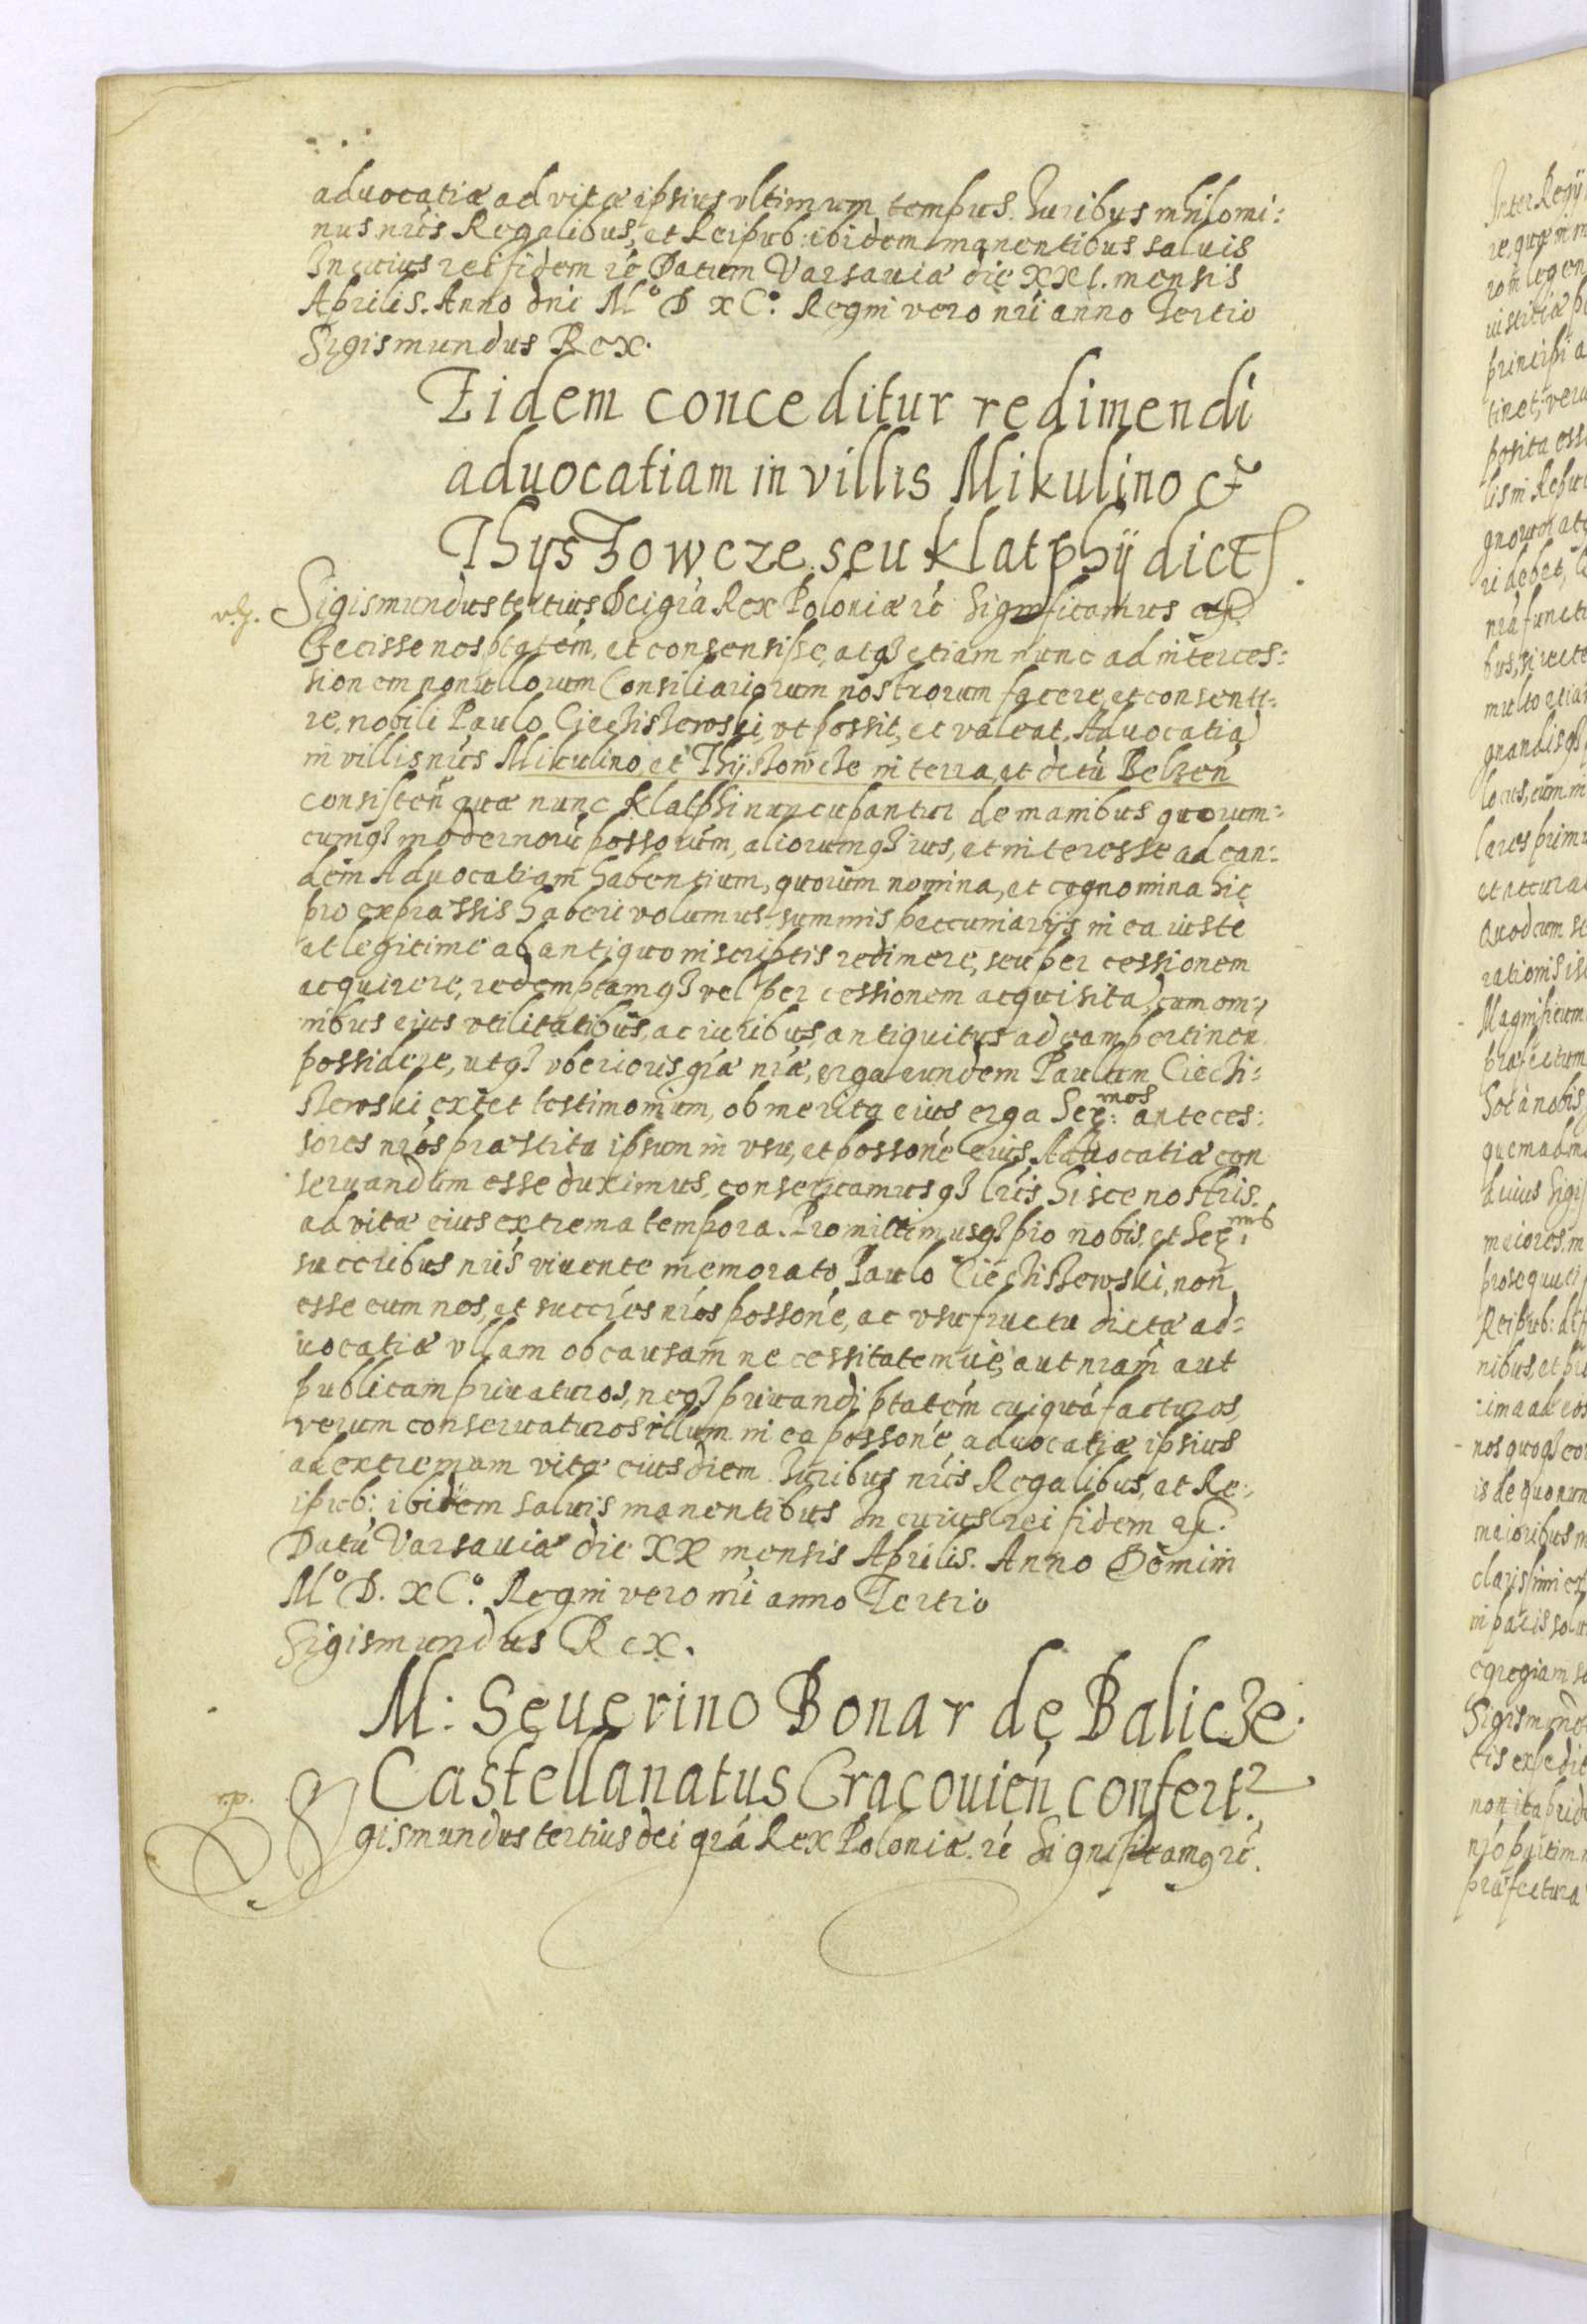 aduocatiæ ad vitæ ipsius vltimum tempus. Iuribus nihilomi:
nus nris Regalibus, et Reipub: ibidem manentibus saluis
In cuius rei fidem rc Datum Varsauiæ die XXI. mensis
Aprilis. Anno dni Mº D XCº. Regni vero nri anno Tertio
Sigismundus Rex.
Eidem conceditur redimendi
aduocatiam in villis Mikulino et
Thyszowcze seu klatphij dict
Sigismundus tertius Dei gra Rex Poloniæ rc Significamus
Fecisse nos ptatem, et consensisse, atqз etiam nunc ad interces:
sionem nonullorum Consiliariorum nostrorum facere, et consenti:
re, nobili Paulo Ciechiszewski, vt possit, et valeat, Aduocatiã
in villis nris Mikulino et Thijszowcze in terra, et dctu Belzen
consisteñ quæ nunc Klatphi nuncupantur de manibus quorum:
cumqз modernorũ possorum, aliorumqз ius, et interesse ad ean:
dem Aduocatiam habentium, quorum nomina, et cognomina hic
pro expræssis haberi volumus, summis peccuniarijs in ea iuste
et legitime ab antiquo inscriptis redimere, seu per cessionem
acquirere, redemptamqз vel per cessionem acquisitã, cum om:
nibus eius vtilitatibus, ac iuribus, antiquitus ad eam pertineñ
possidere, utqз vberioris græ nræ, erga eundem Paulum Ciechi:
szewski extet testimonium, ob merita eius erga Ser:mos anteces:
sores nros præstita ipsum in vsu, et possone eius Aduocatiæ con
seruandum esse duximus, conseruamusqз lris hisce nostris.
ad vitæ eius extrema tempora. Promittimusqз pro nobis, et Ser:mis
succribus nris viuente memorato Paulo Ciechiszewski, non
esse eum nos, et succres nros possone, ac vsufructu dictæ ad:
uocatiæ vllam ob causam necessitatemue, aut nram aut
publicam priuaturos, neqз priuandi ptatem cuiquã facturos,
verum conseruaturos illum in ea possone aduocatiæ ipsius
ad extremum vitæ eius diem Iuribus nris Regalibus, et Re:
ipub: ibidem saluis manentibus In cuius rei fidem rc.
Datũ Varsauiæ die XX mensis Aprilis. Anno Domini
Mº D. XCº. Regni vero nri anno Tertio
Sigismundus Rex.
M: Seuerino Bonar de Balicze
Castellanatus Cracouień confert.
Sigismundus tertius dei gra Rex Poloniæ rc Significamq rc.